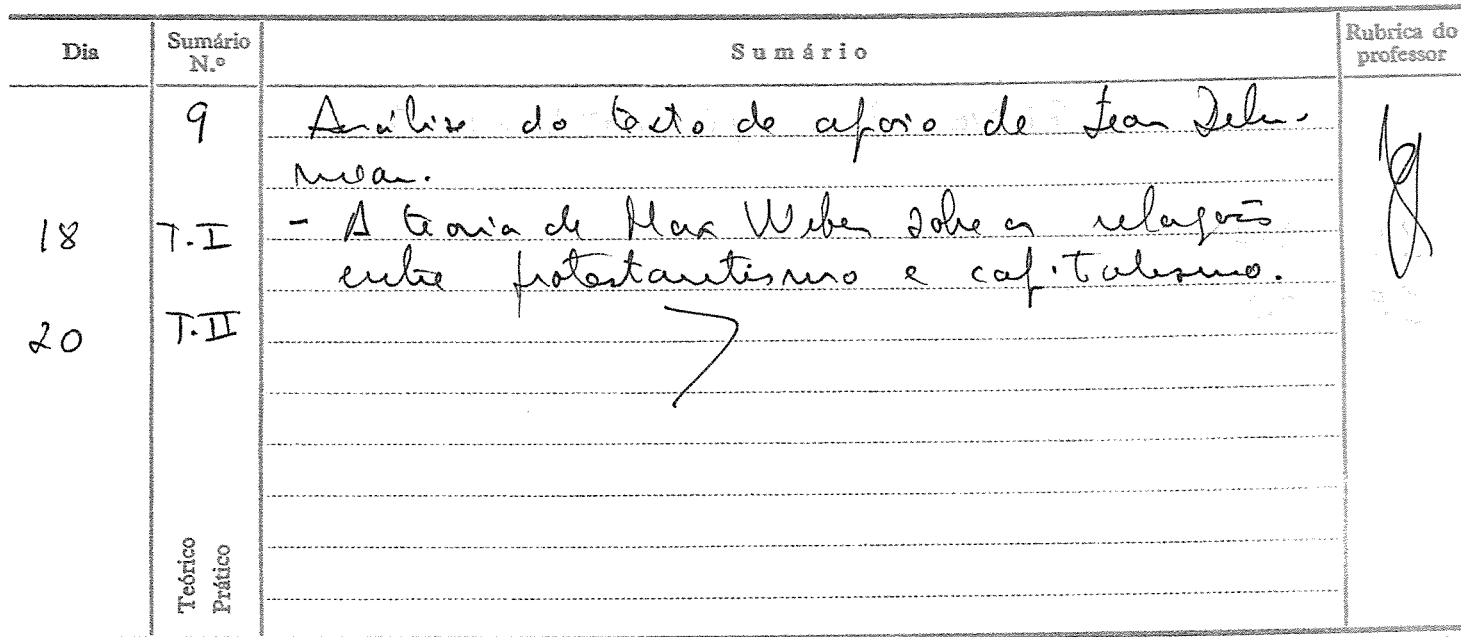 Dia Sumário N.º Sumário Rubrica do professor
9 Análise do texto de apoio de Jean Delu-
meau.
18 T.I - A teoria de Max Weber sobre as relações
entre protestantismo e capitalismo.
20 T.II
Teórico
Prático